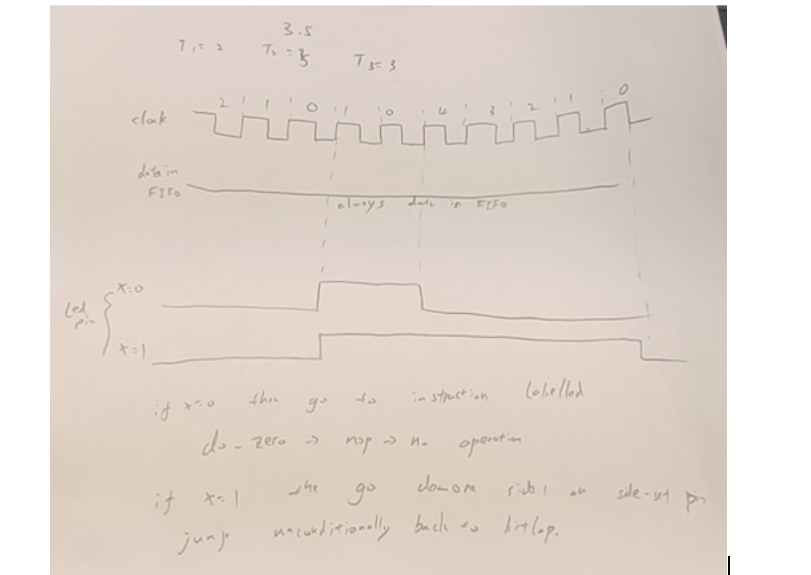 3.5
T1= 2 T2= 5 T3= 3
clock 2 1 0 1 0 4 3 2 1 0
data in
FIFO
always data in FIFO
Led
pin
x=0
x=1
if x=0 then go to instruction labelled
do_zero → nop → no operation
if x=1 the go side 1 on side-set pin
jump unconditionally back to bitloop.